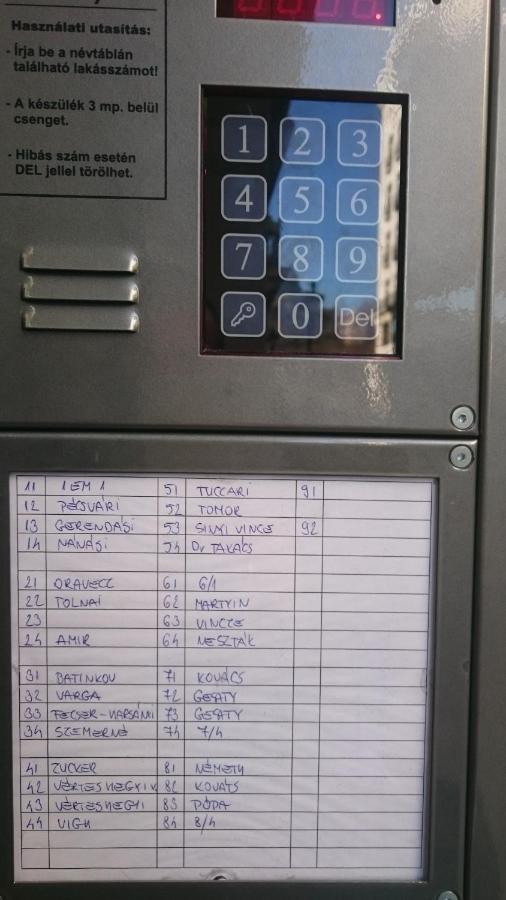 Használati utasítás:
- Írja be a névtáblán
található lakásszámot!
- A készülék 3 mp. belül
csenget.
- Hibás szám esetén
DEL jellel törölhet.
1 2 3
4 5 6
7 8 9
0 Del
11 1 EM 1 51 TUCCARI 91
12 PÉCSVÁRI 52 TOMOR
13 GERENDASI 53 SINYI VINCE 92
14 NÁNÁSI 54 Dr TAKÁCS
21 ORAVECZ 61 6/1
22 TOLNAI 62 MARTYIN
23 63 VINCZE
24 AMIR 64 NESZTÁK
31 BATINKOV 71 KOVÁCS
32 VARGA 72 GERTY
33 FECSER-HARSÁNYI 73 GERTY
34 SZEMERNÉ 74 7/4
41 ZUCKER 81 NÉMETH
42 VÉRTESHEGYI 82 KOVÁTS
43 VÉRTESHEGYI 83 PÓPA
44 VIGH 84 8/4